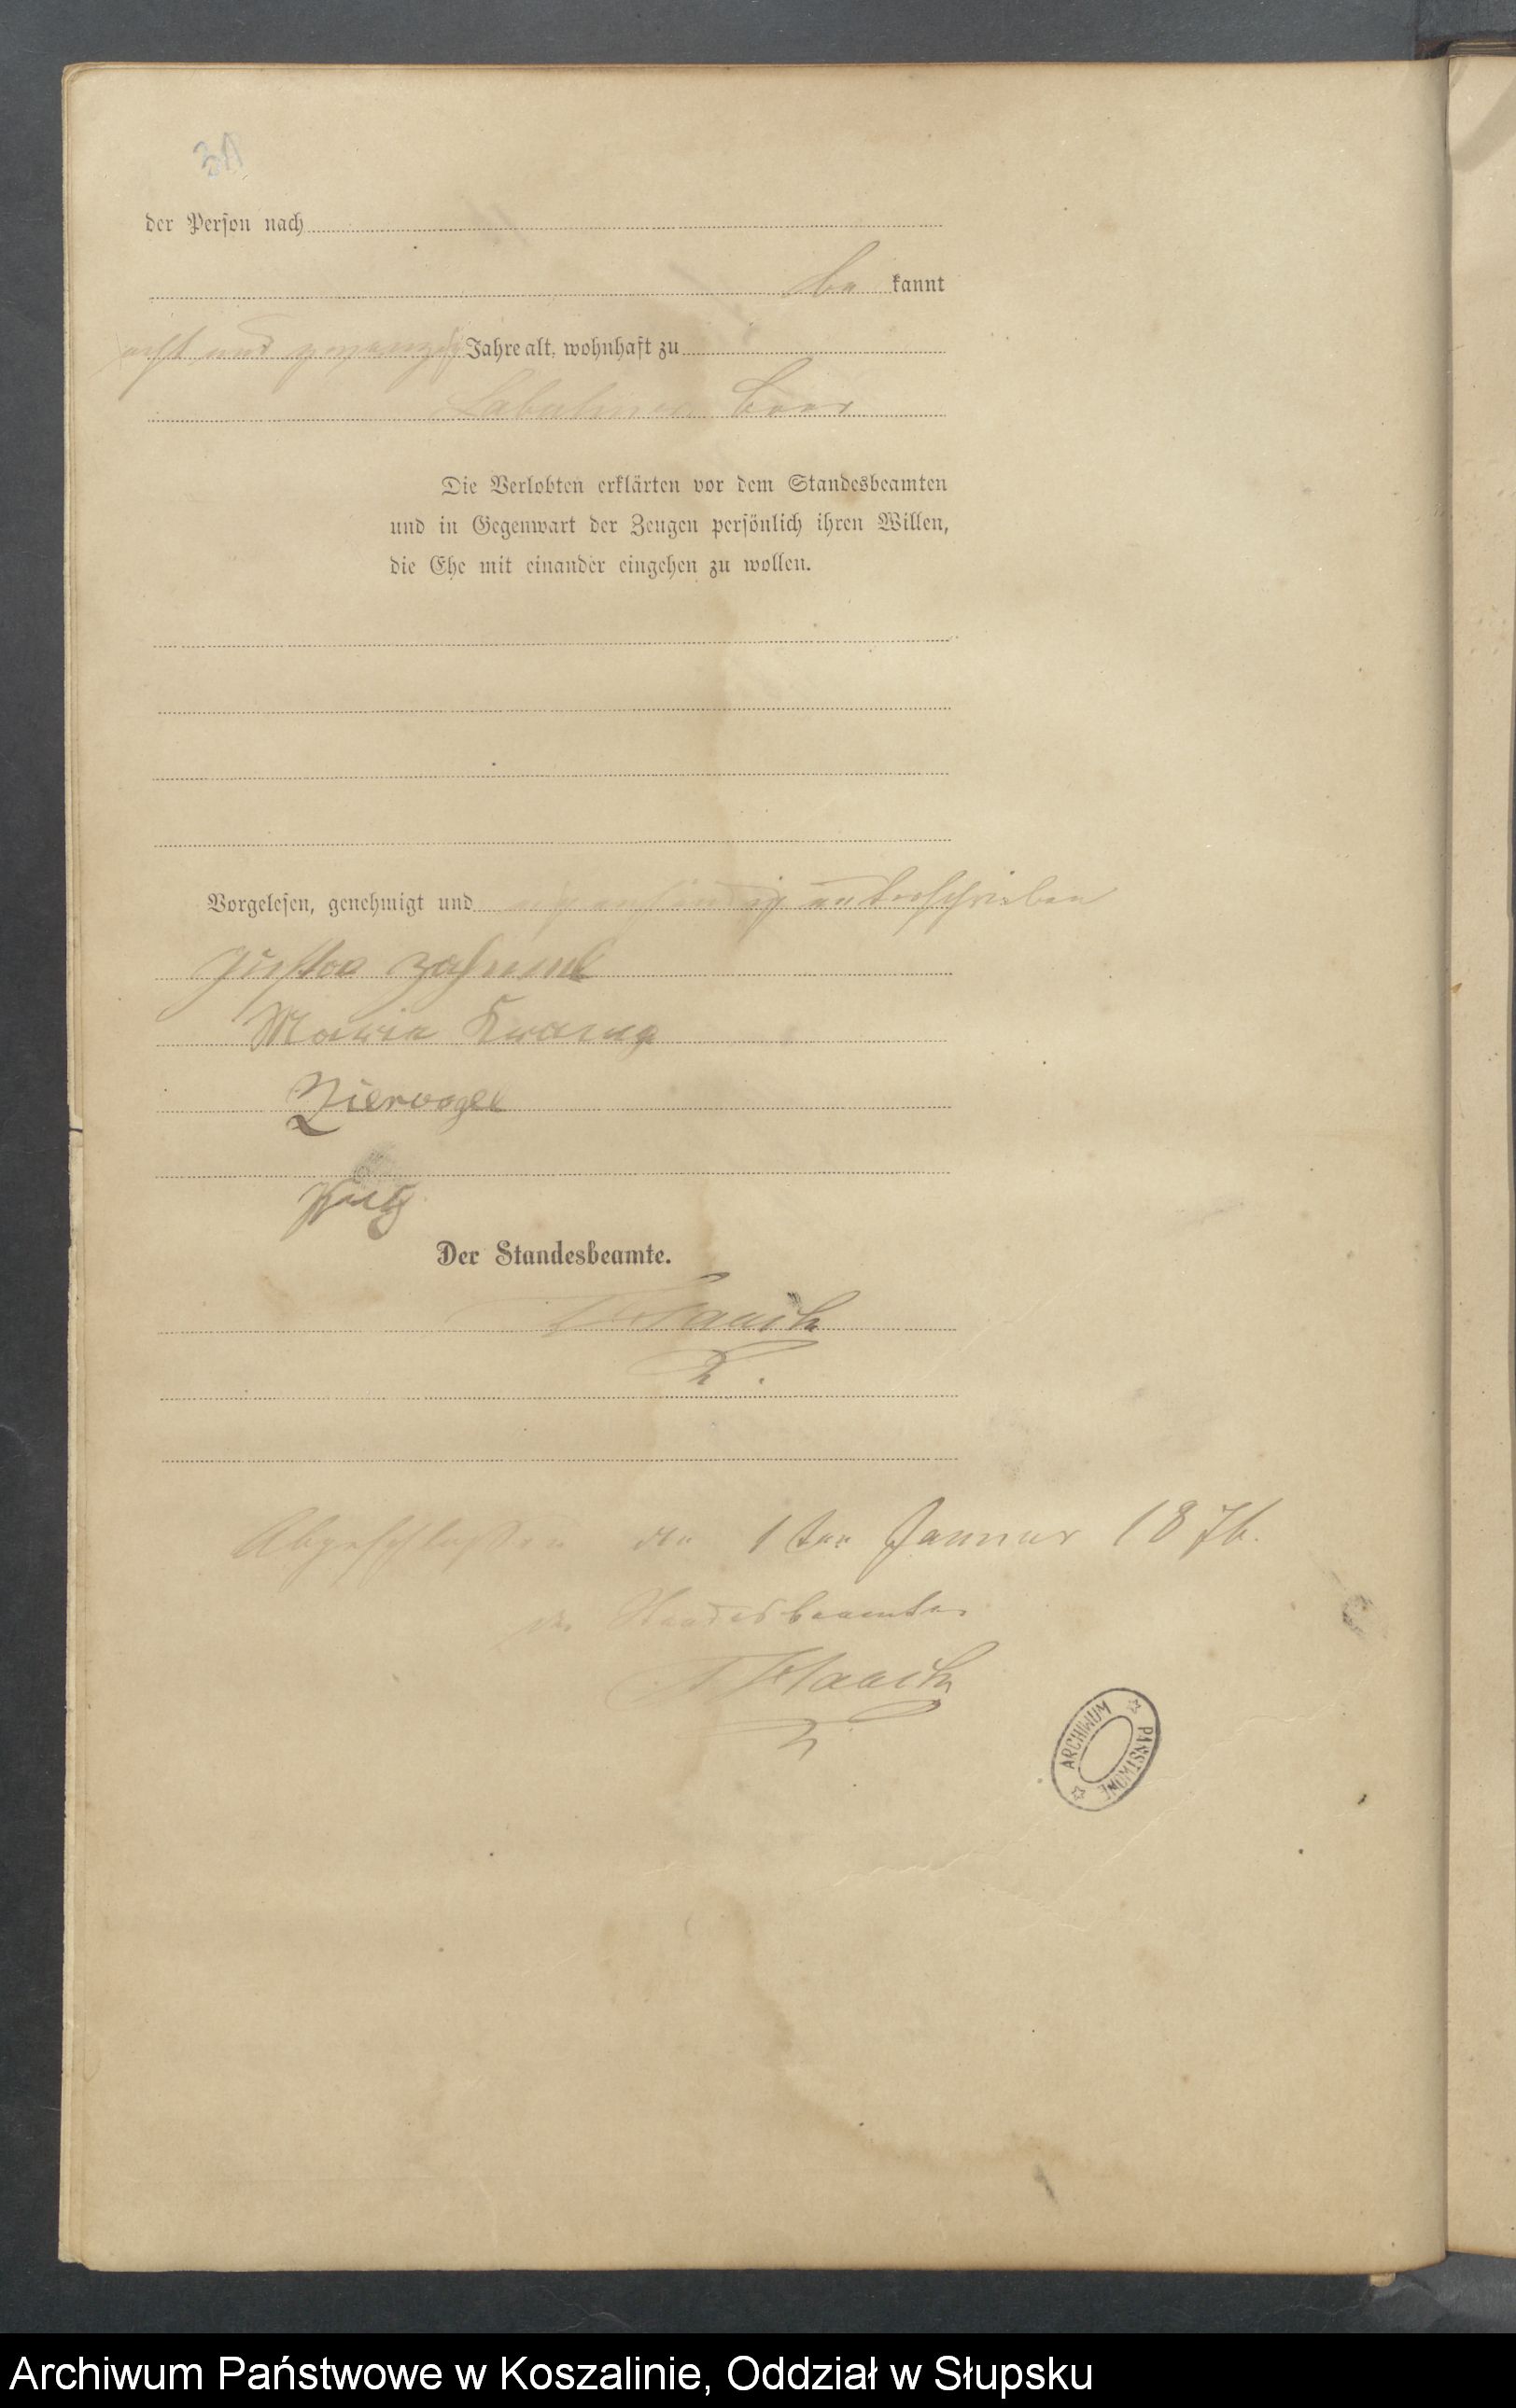 31
der Person nach
be kannt
acht und zwanzig Jahre alt, wohnhaft zu
Die Verlobten erklärten vor dem Standesbeamten
und in Gegenwart der Zeugen persönlich ihren Willen,
die Ehe mit einander eingehen zu wollen.
Vorgelesen, genehmigt und eigenhändig unterschrieben
Gustav
Maria
Ziervogel
Der Standesbeamte.
Abgeschlossen den 1ten Januar 1876.
Der Standesbeamte
ARCHIWUM PAŃSTWOWE
Archiwum Państwowe w Koszalinie, Oddział w Słupsku